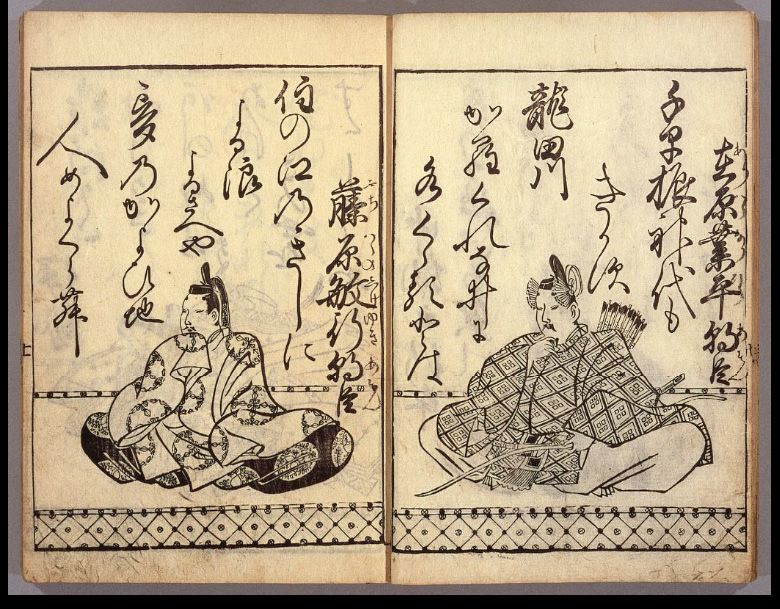 在原業平朝臣
千早振神代も
きかす
龍田川
からくれなゐに
水くゝるとは
藤原敏行朝臣
住の江乃きしに
よる浪
よるさへや
夢乃かよひ地
人めよくらむ